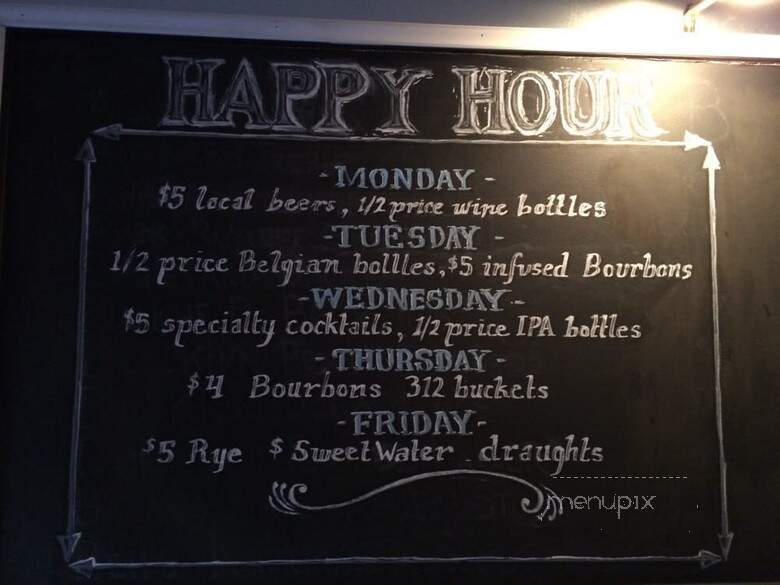 HAPPY HOUR
- MONDAY -
$5 local beers, 1/2 price wine bottles
- TUESDAY -
1/2 price Belgian bottles, $5 infused Bourbons
- WEDNESDAY -
$5 specialty cocktails, 1/2 price IPA bottles
- THURSDAY -
$4 Bourbons 312 buckets
- FRIDAY -
$5 Rye $ SweetWater draughts
menupix